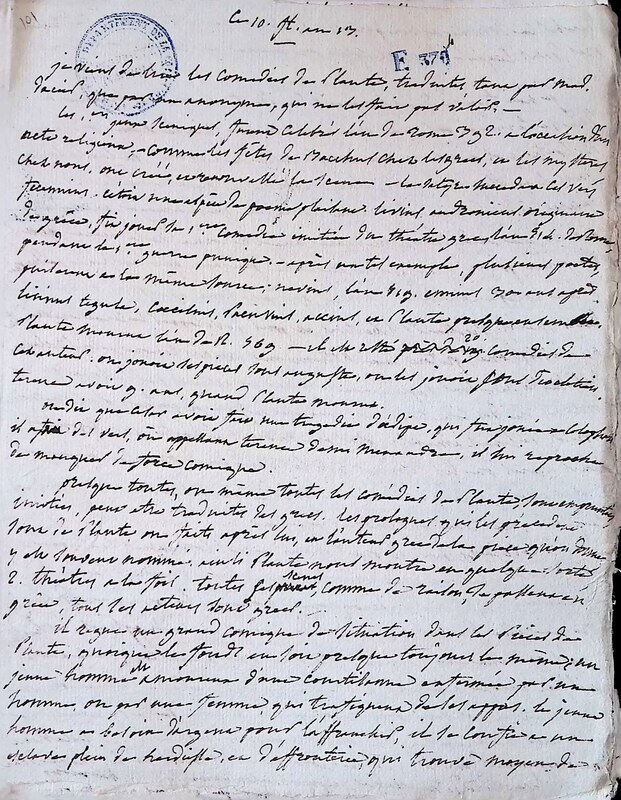 101
ce 10. fr. an 13.
E 379
je viens de lire les Comedies de Plaute, traduites, tant par mad.
dacier, que par un anonyme, qui ne les fait pas valoir. —
les jeux Sceniques, furent Celebrés l'an de rome 392. a l'occasion d'un
acte religieux, comme les fêtes de Bacchus chez les grecs, et les mysteres
chez nous, ont créé, et renouvellé la Scene
fescennins. c'était une espèce de poeme plaisant. livius andronicus originaire
de grèce, fit jouer la 1re Comedie imitée du théatre grec l'an 514. de Rome,
pendant la 1re guerre punique. — après un tel exemple, plusieurs poetes
puiserent a la même source; nevius, l'an 519. ennius 30 ans après.
licinius tegula, Coecilius, pacuvius, accius, et Plaute presque en même
Plaute mourut l'an de R. 569 — il etc 20 Comedies de
On jouoit ses pieces sous auguste, on les jouoit sous Diocletien,
terence avoit 9. ans, quand Plaute mourut.
on dit que Cesar avoit fait une tragedie d'oedipe, qui
il a fait des vers, où appellant terence demi menandre, il lui reproche
de manquer de force comique.
presque toutes, ou même toutes les comédies de Plaute, sont empruntées,
imitées, peut etre traduites des grecs. les prologues qui les precedent
sont de Plaute ou faits après lui, et l'auteur grec de la piece qu'on donne
y est souvent nommé. ainsi Plaute nous montre en quelque sorte
2. théatres a la fois. toutes ses scenes comme de raison, se passent en
grèce, tous les acteurs sont grecs.
il regne un grand comique de Situation dans les Pièces de
Plaute, quoique le fonds en soit presque toujours le même; un
jeune homme est amoureux d'une courtisanne enfermée par un
homme, ou par une femme, qui trafiquent de ses appas. le jeune
homme a besoin d'argent pour l'affranchir, il se confie a un
esclave plein de hardiesse, et d'effronterie, qui trouve moyen de